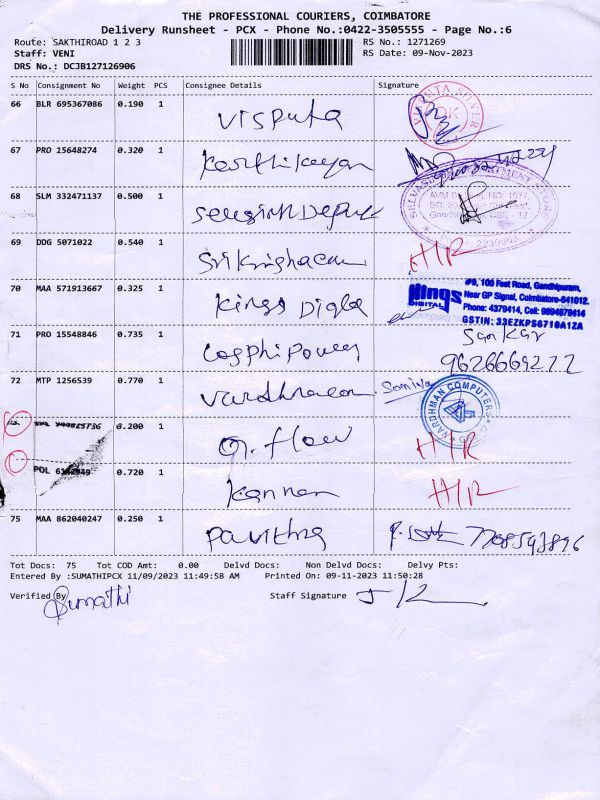 THE PROFESSIONAL COURIERS, COIMBATORE
Delivery Runsheet - PCX - Phone No.:0422-3505555 - Page No.:6
Route: SAKTHIROAD 1 2 3 RS No.: 1271269
Staff: VENI RS Date: 09-Nov-2023
DRS No.: DCJB127126906
S No Consignment No Weight PCS Consignee Details Signature
66 BLR 695367086 0.190 1 Visputa
67 PRO 15648274 0.320 1 Karthikeyan
68 SLM 332471137 0.500 1
AVM
COIMBATORE
69 DDG 5071022 0.540 1 H/R
70 MAA 571913667 0.325 1 Kings Digital
Kings DIGITAL #9, 100 Feet Road, Gandhipuram,
Near GP Signal, Coimbatore-641012.
Phone: 4379414, Cell: 9894879414
GSTIN: 33EZKPS6710A1ZA
71 PRO 15548846 0.735 1 Sankar
9626669277
72 MTP 1256539 0.770 1 VARDHMAN COMPUTERS
0.200 1 H/R
POL 0.720 1 Kannan H/R
75 MAA 862040247 0.250 1 Pavithra
Tot Docs: 75 Tot COD Amt: 0.00 Delvd Docs: Non Delvd Docs: Delvy Pts:
Entered By :SUMATHIPCX 11/09/2023 11:49:58 AM Printed On: 09-11-2023 11:50:28
Verified By Sumathi Staff Signature